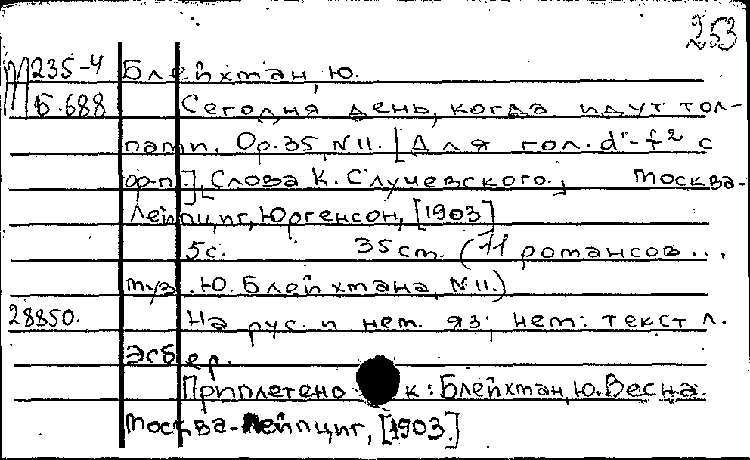 253
М 235-4 Блейхман, Ю.
Б.688 Сегодня день, когда идут тол-
пами. Ор.35, №11. [Для гол. d'-f² с
ф-п.]. [Слова К. Случевского.] Москва-
Лейпциг, Юргенсон, [1903]
5с. 35см. (11 романсов...
муз. Ю. Блейхмана, №11.)
28850. На рус. и нем. яз; нем: текст Л.
Эсбер.
Приплетено к: Блейхман, Ю. Весна.
Москва-Лейпциг, [1903.]